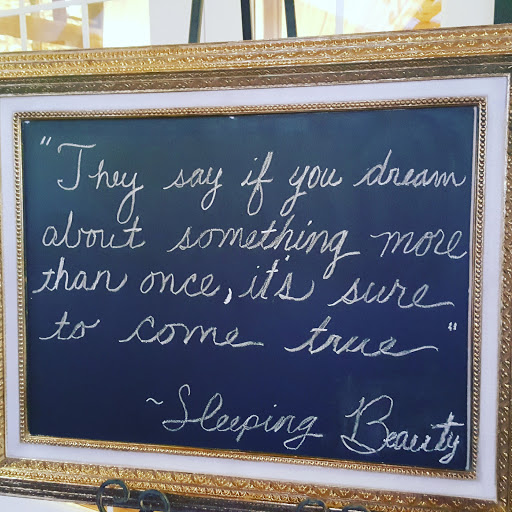 "They say if you dream
about something more
than once, it's sure
to come true"
~Sleeping Beauty